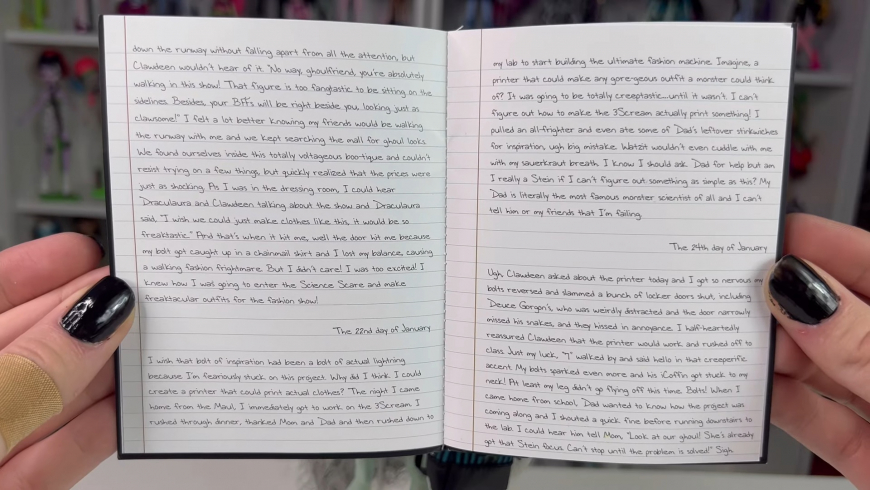 down the runway without falling apart from all the attention, but
Clawdeen wouldn't hear of it. "No way, ghoulfriend, you're absolutely
walking in this show! That figure is too fangtastic to be sitting on the
sidelines. Besides, your BFFs will be right beside you, looking just as
clawsome!" I felt a lot better knowing my friends would be walking
the runway with me and we kept searching the mall for ghoul looks.
We found ourselves inside this totally voltageous boo-tique and couldn't
resist trying on a few things, but quickly realized that the prices were
just as shocking. As I was in the dressing room, I could hear
Draculaura and Clawdeen talking about the show and Draculaura
said, "I wish we could just make clothes like this, it would be so
freaktastic." And that's when it hit me, well the door hit me because
my bolt got caught up in a chainmail shirt and I lost my balance, causing
a walking fashion frightmare. But I didn't care! I was too excited! I
knew how I was going to enter the Science Scare and make
freaktacular outfits for the fashion show!
The 22nd day of January
I wish that bolt of inspiration had been a bolt of actual lightning
because I'm feariously stuck on this project. Why did I think I could
create a printer that could print actual clothes? The night I came
home from the Maul, I immediately got to work on the 3Scream. I
rushed through dinner, thanked Mom and Dad and then rushed down to
my lab to start building the ultimate fashion machine. Imagine, a
printer that could make any gore-geous outfit a monster could think
of? It was going to be totally creeptastic...until it wasn't. I can't
figure out how to make the 3Scream actually print something! I
pulled an all-frighter and even ate some of Dad's leftover stinkwiches
for inspiration, ugh big mistake. Watzit wouldn't even cuddle with me
with my sauerkraut breath. I know I should ask Dad for help but am
I really a Stein if I can't figure out something as simple as this? My
Dad is literally the most famous monster scientist of all and I can't
tell him or my friends that I'm failing.
The 24th day of January
Ugh, Clawdeen asked about the printer today and I got so nervous my
bolts reversed and slammed a bunch of locker doors shut, including
Deuce Gorgon's, who was weirdly distracted and the door narrowly
missed his snakes, and they hissed in annoyance. I half-heartedly
reassured Clawdeen that the printer would work and rushed off to
class. Just my luck, "J" walked by and said hello in that creeperific
accent. My bolts sparked even more and his iCoffin got stuck to my
neck! At least my leg didn't go flying off this time. Bolts! When I
came home from school, Dad wanted to know how the project was
coming along and I shouted a quick fine before running downstairs to
the lab. I could hear him tell Mom, "Look at our ghoul! She's already
got that Stein focus. Can't stop until the problem is solved!" Sigh.